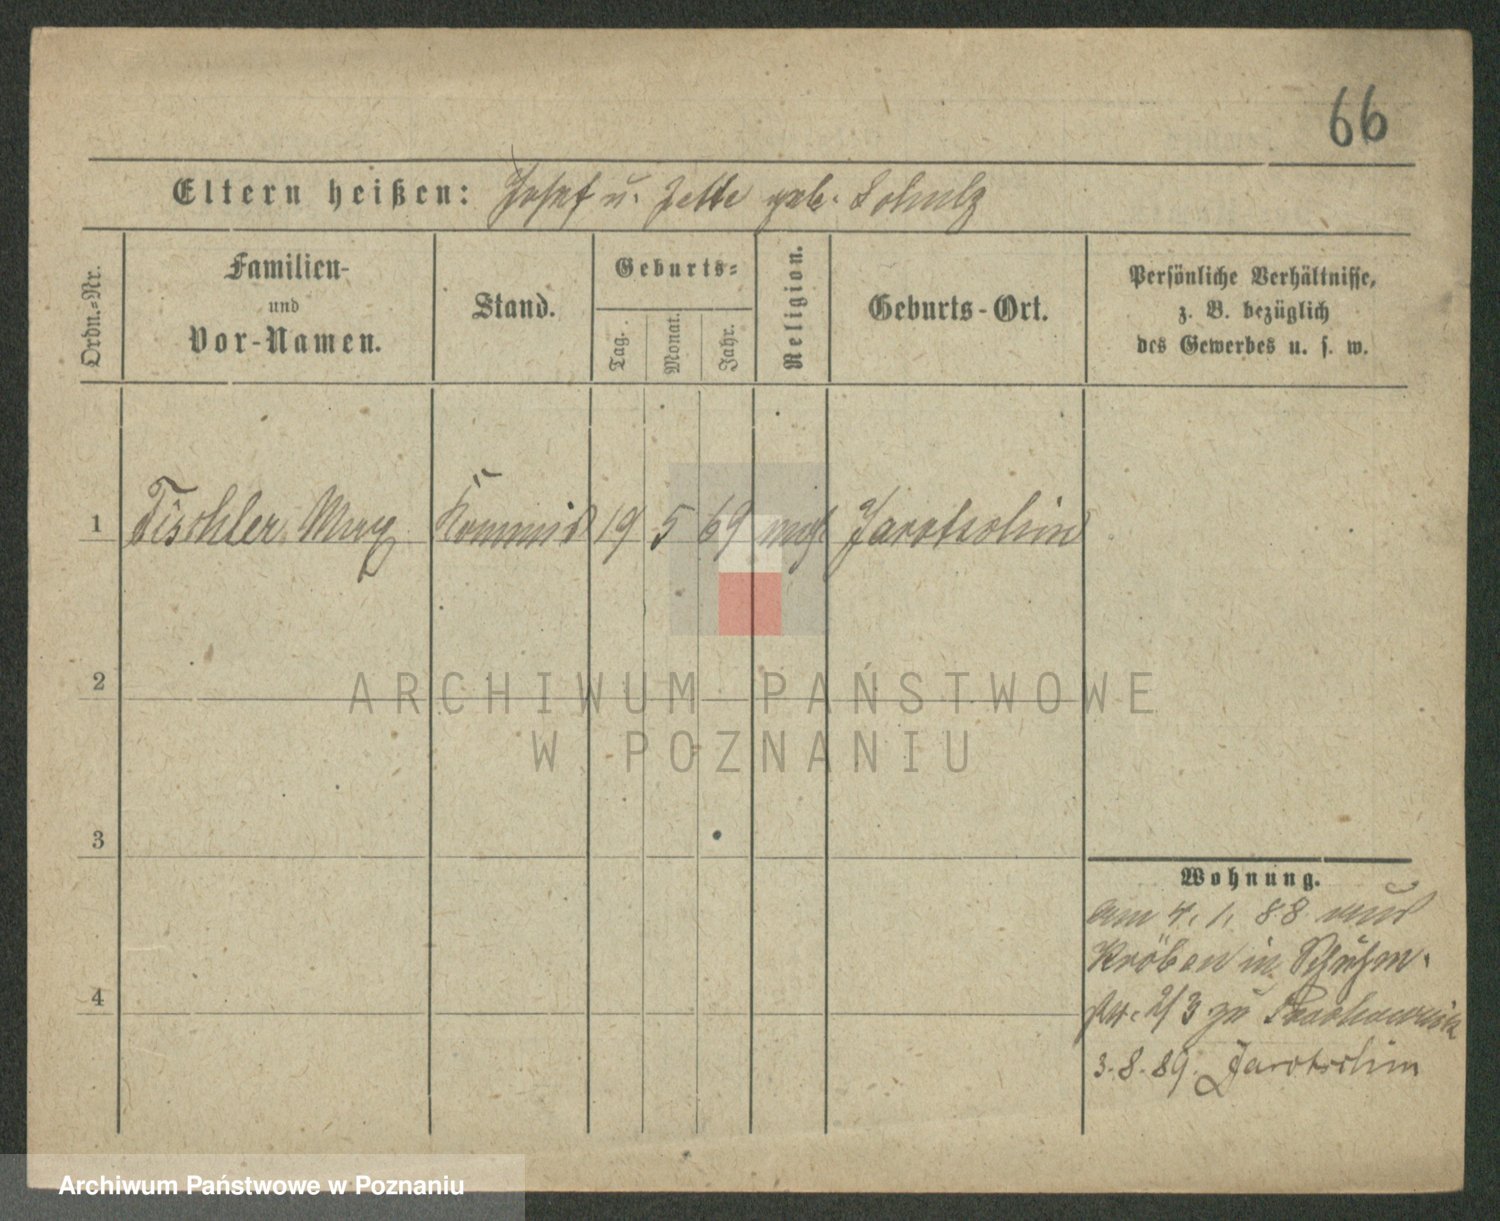 66
Eltern heißen: Josef u. Jette geb. Schulz
Ordn.-Nr.
Familien-
und
Vor-Namen.
Stand.
Geburts-
Tag.
Monat.
Jahr.
Religion.
Geburts-Ort.
Persönliche Verhältnisse,
z. B. bezüglich
des Gewerbes u. s. w.
1 Tischler, Max Kommis 19 5 69 mos. Jarotschin
2
3
4
Wohnung.
am 4. 1. 88 aus
Kröben in Schuhm.
str. 2/3 zu
3. 8. 89. Jarotschin
ARCHIWUM PAŃSTWOWE
W POZNANIU
Archiwum Państwowe w Poznaniu